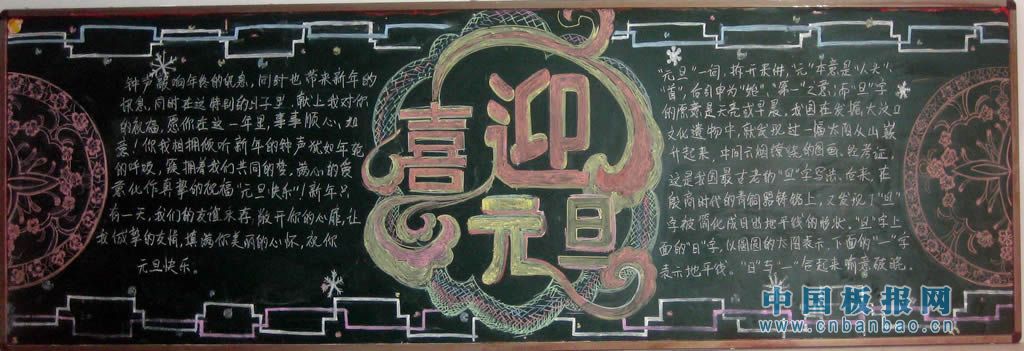 钟声敲响年终的讯息，同时也带来新年的
讯息，同时在这特别的日子里，献上我对你
的祝福，愿你在这一年里，事事顺心，如
意！你我相拥倾听新年的钟声犹如年轮
的呼吸，簇拥着我们共同的梦，满心的爱
意化作真挚的祝福“元旦快乐”！新年只
有一天，我们的友谊永存，敞开你的心扉，让
我诚挚的友情，填满你美丽的心怀，祝你
元旦快乐。
喜迎
元旦
“元旦”一词，拆开来讲，“元”本意是“人头”、
“首”，后引申为“始”、“第一”之意；而“旦”字
的原意是天亮或早晨。我国在发掘大汶口
文化遗物中，就发现过一幅太阳从山巅
升起来，中间云烟缭绕的图画。经考证，
这是我国最古老的“旦”字写法。后来，在
殷商时代的青铜器铸铭上，又发现了“旦”
字被简化成日出地平线的形状。“旦”字上
面的“日”字，以圆圆的太阳表示，下面的“一”字
表示地平线。“日”与“一”合起来喻意破晓。
中国板报网
www.cnbanbao.cn